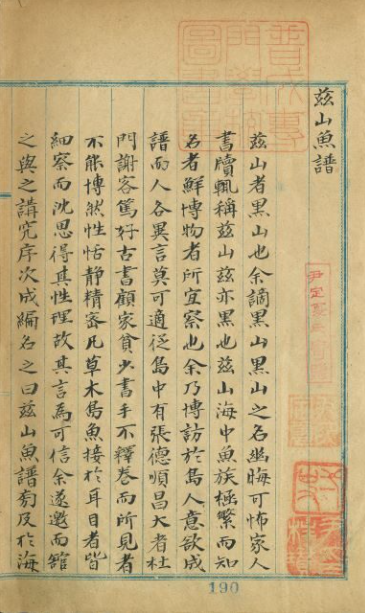 玆山魚譜
玆山者黑山也余謫黑山黑山之名幽晦可怖家人
書牘輒稱玆山玆亦黑也玆山海中魚族極繁而知
名者鮮博物者所宜察也余乃博訪於島人意欲成
譜而人各異言莫可適從島中有張德順昌大者杜
門謝客篤好古書顧家貧少書手不釋卷而所見者
不能博然性恬靜精密凡草木鳥魚接於耳目者皆
細察而沈思得其性理故其言為可信余遂邀而舘
之與之講究序次成編名之曰玆山魚譜旁及於海
190